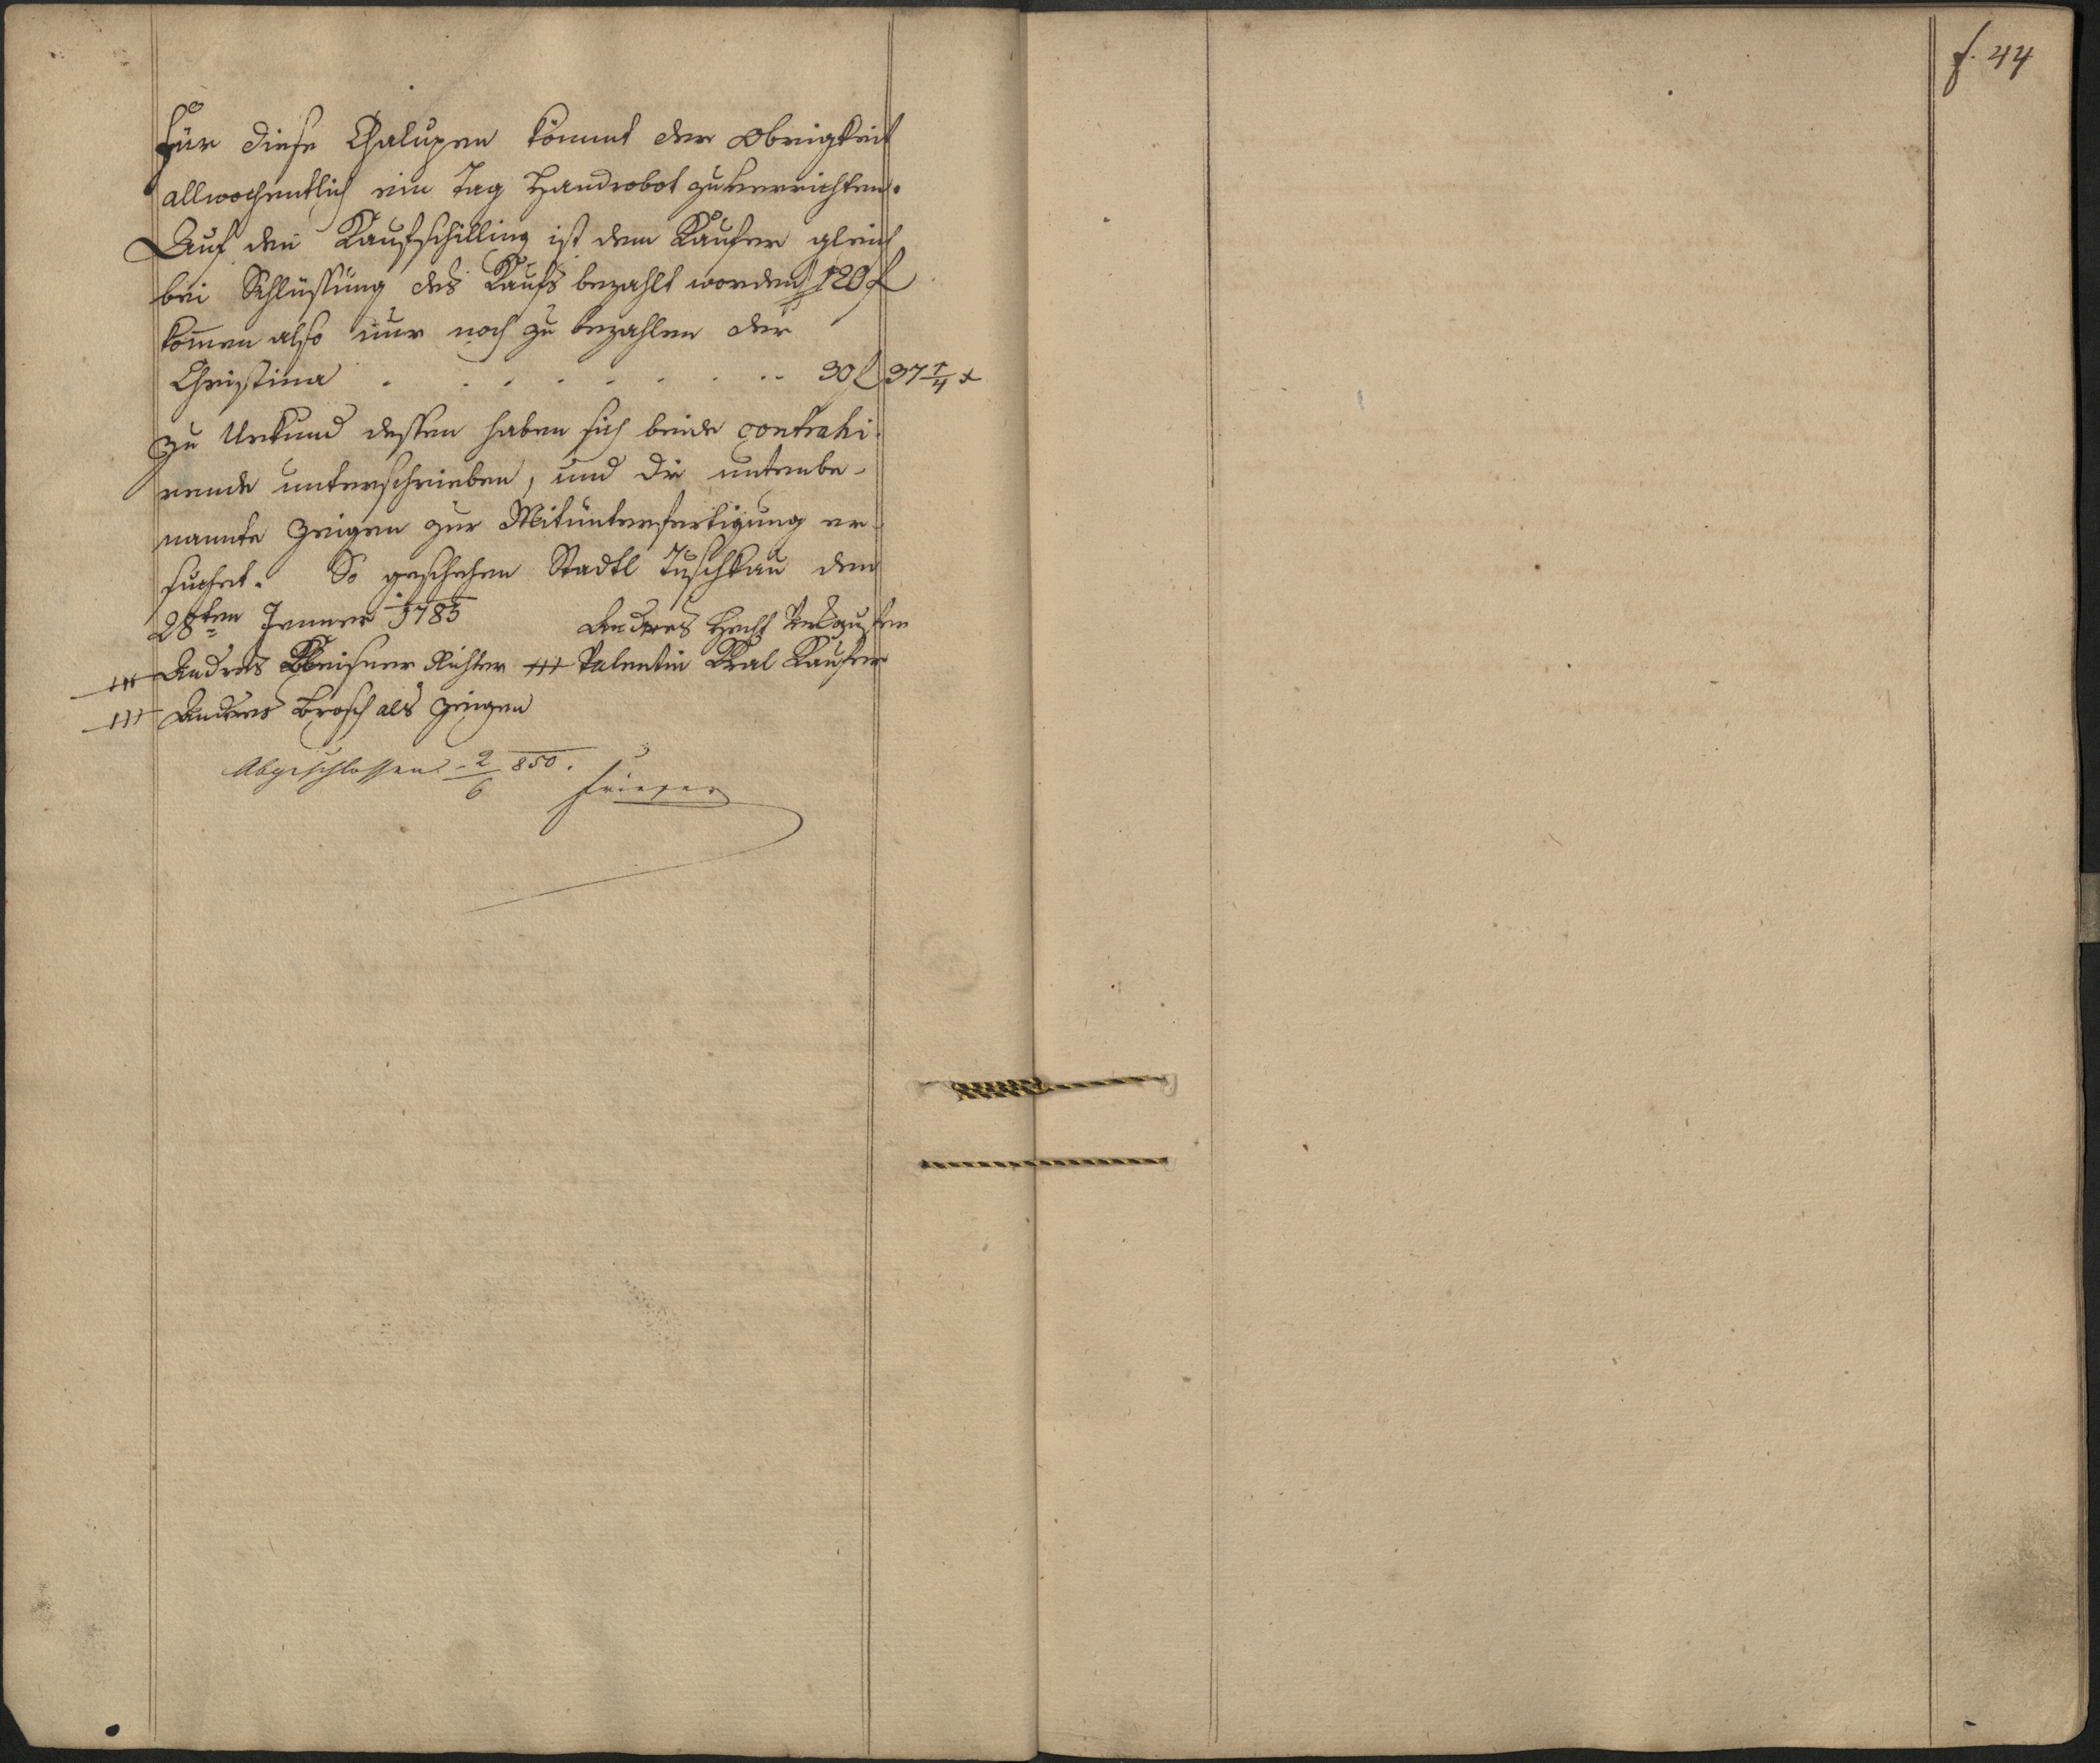 für diese Chalupen kömmt der Obrigkeit
allwochentlich ein Tag Handrobot zu verrichten.
Auf den Kaufschilling ist dem Kaufer gleich
bei Schlüssung des Kaufs bezahlt worden 120 f
komen also nur noch zu bezahlen der
Christina . . . . . . . . . 30 f 37 1/4 x
zu Urkund dessen haben sich beide contrahi-
rende unterschrieben, und die untenbe-
nannte Zeigen zur Mitunterfertigung er-
suchet. So geschehen Stadtl Tuschkau den
28ten Jenner 1785 Andres Hecht Verkaufer
+++ Andres Richter +++ Valentin Kral Kaufer
+++ Andres Brosch als Zeigen
Abgeschlossen 2/6 850.
f. 44